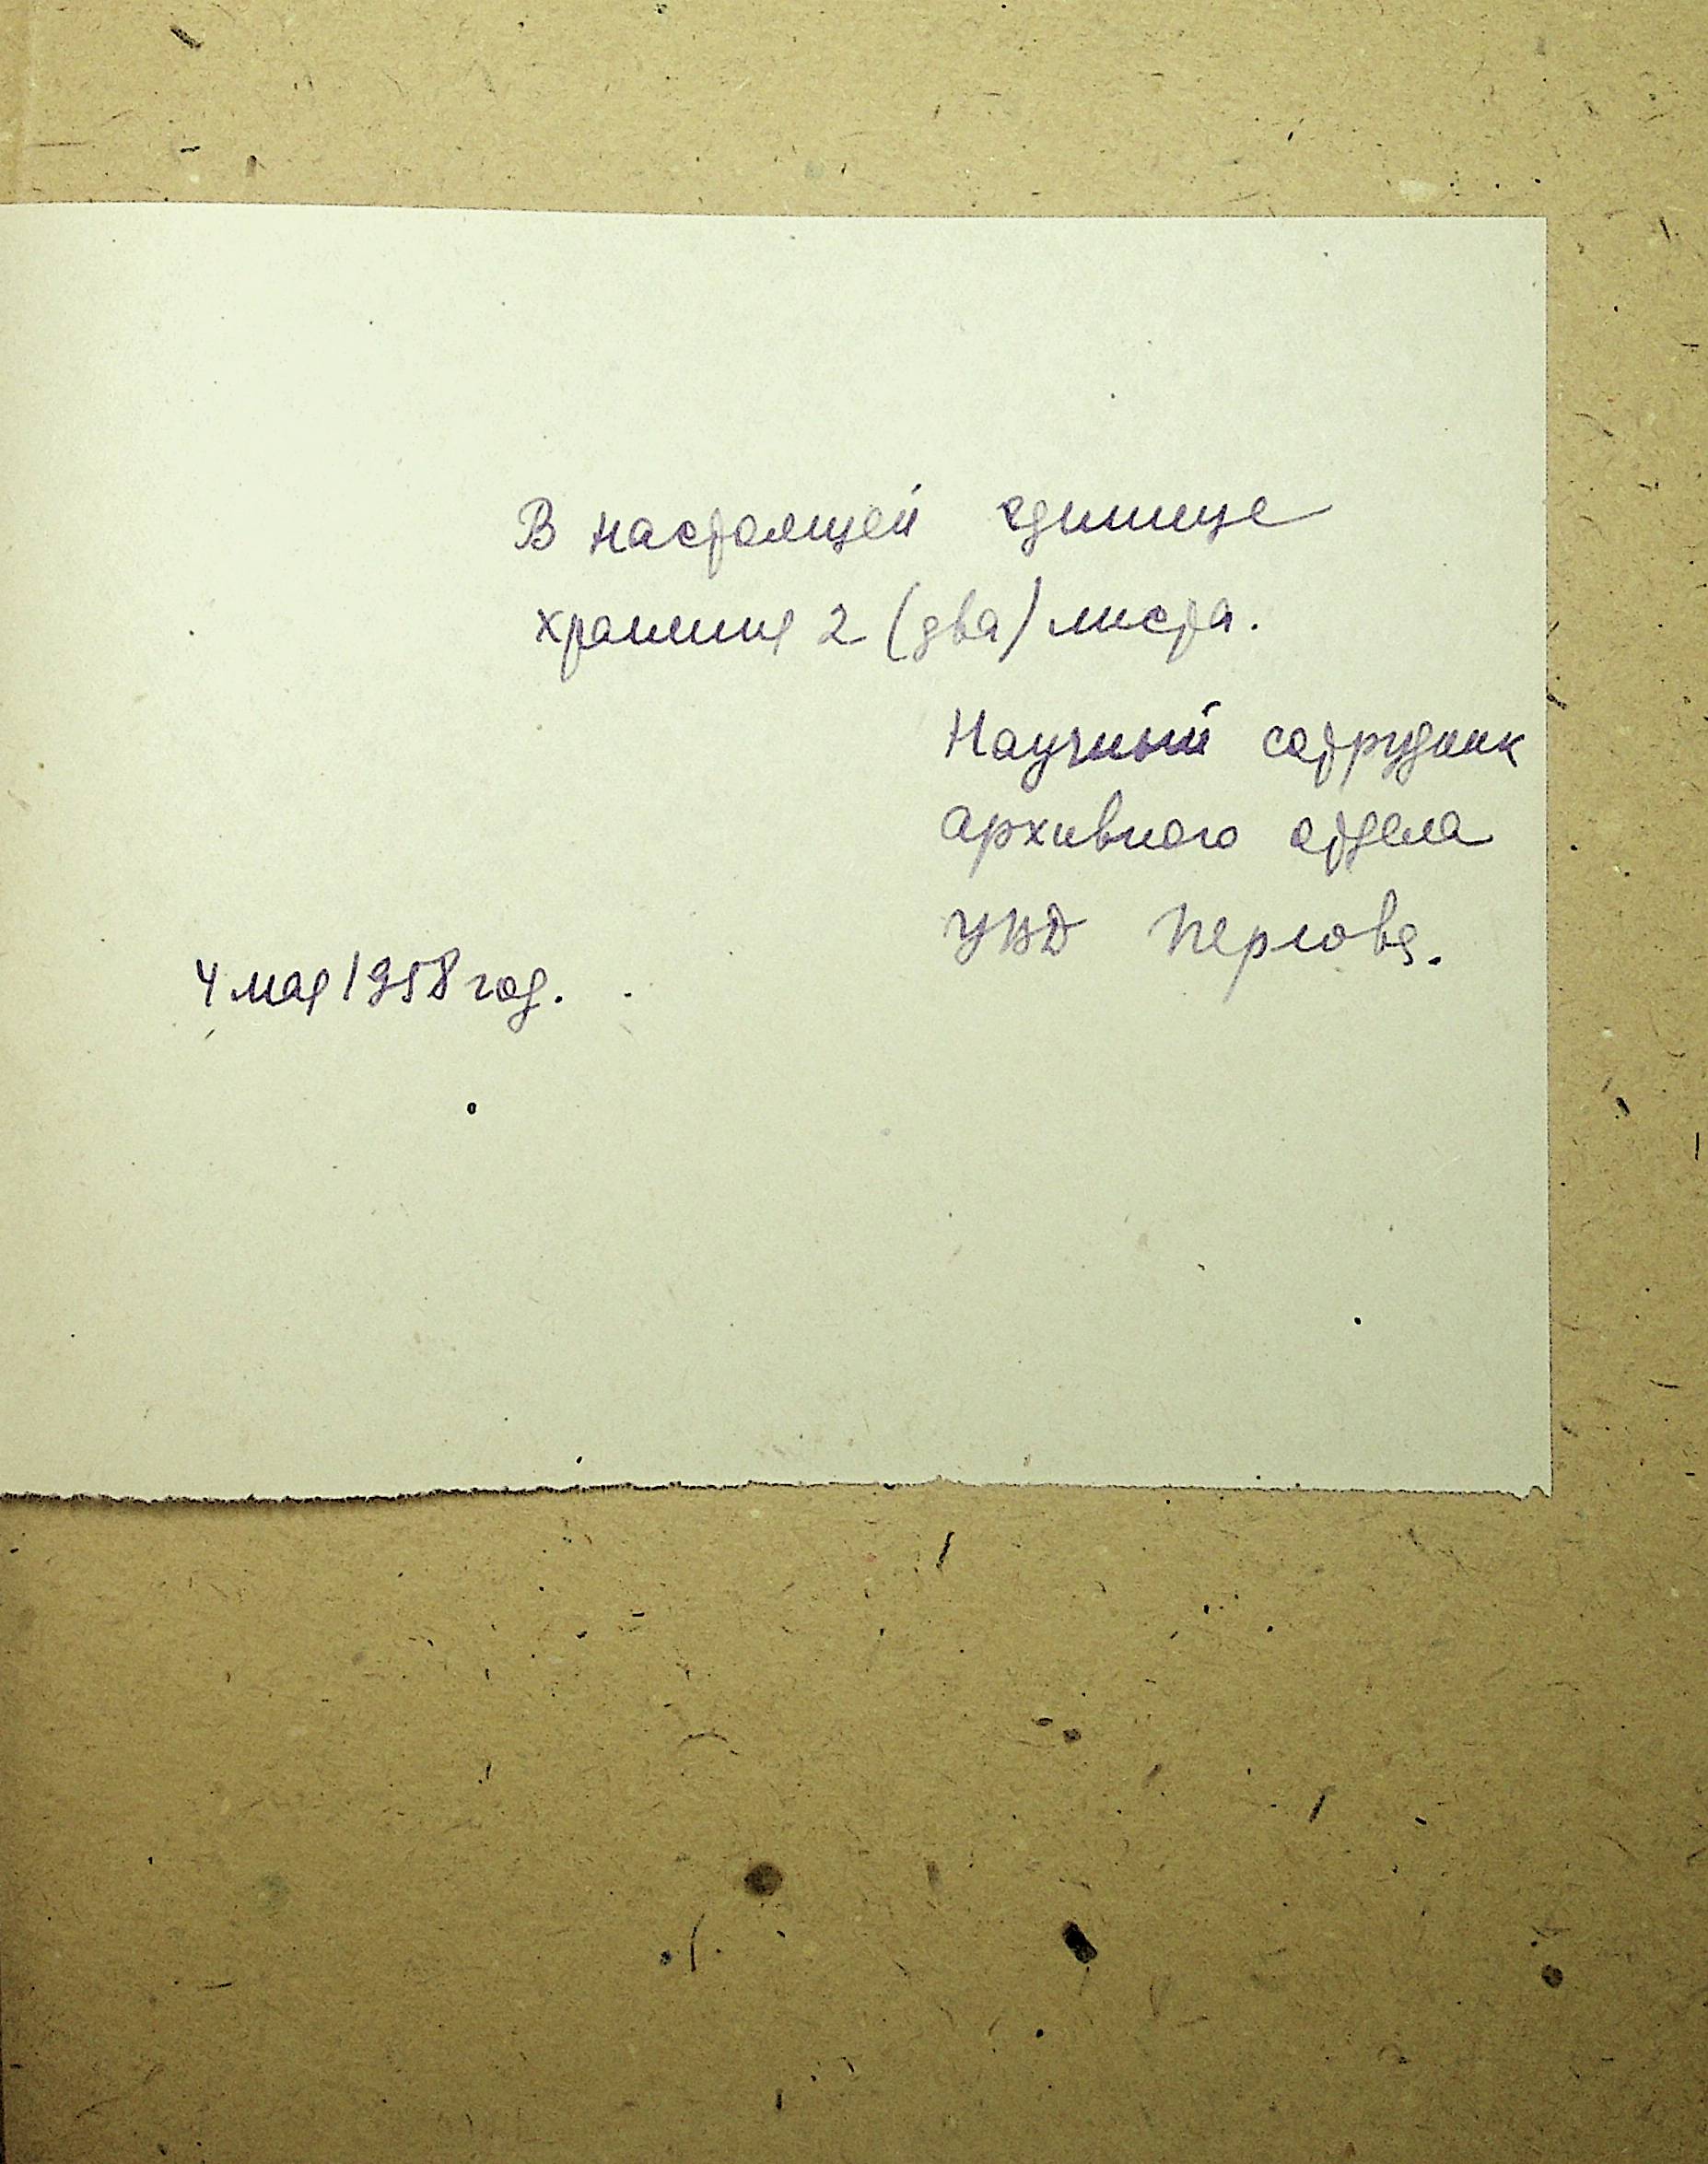 В настоящей единице
хранения 2 (два) листа.
Научный сотрудник
архивного отдела
УВД
4 мая 1958 год.